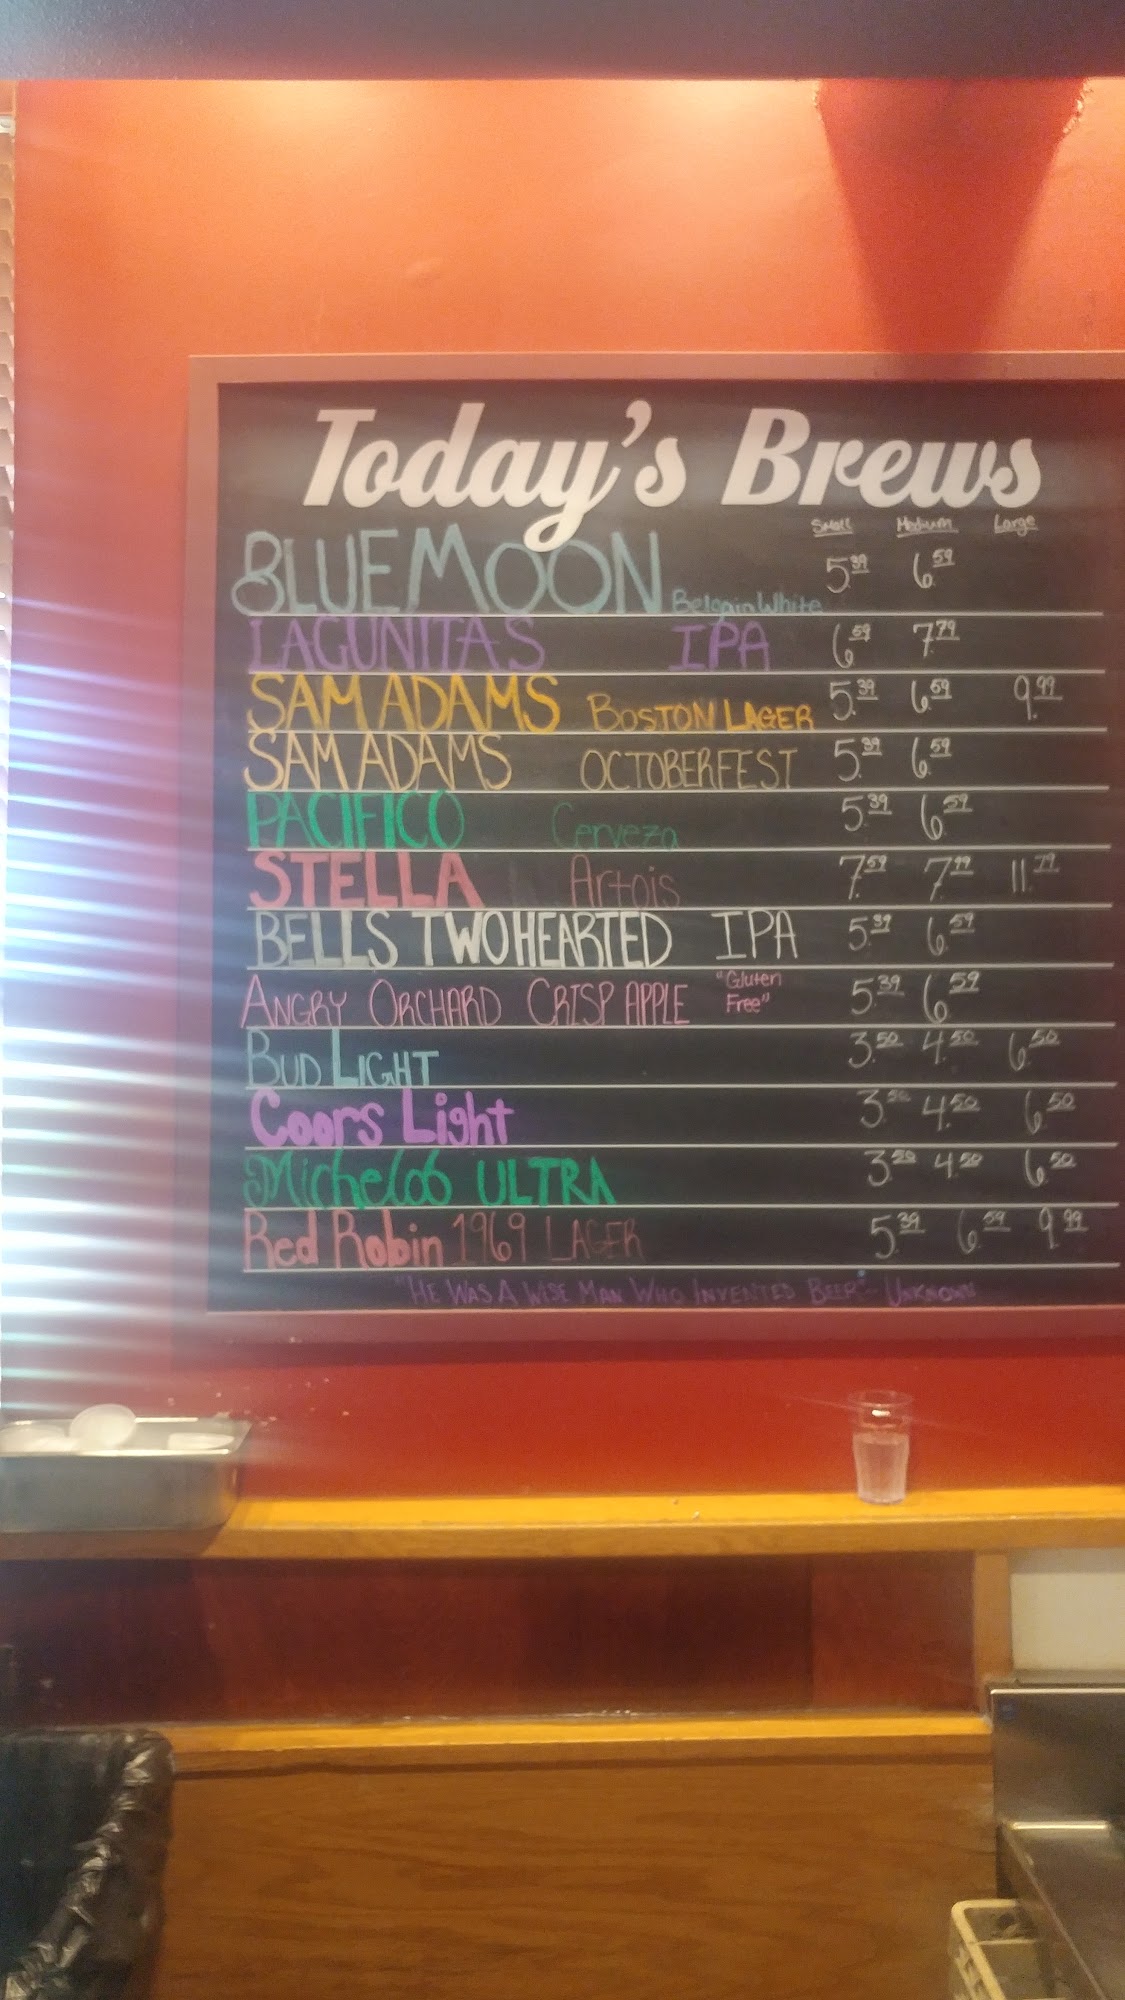 Today's Brews
Small Medium Large
BLUE MOON Belgain White 5.39 6.59
LAGUNITAS IPA 6.59 7.79
SAM ADAMS BOSTON LAGER 5.39 6.59 9.99
SAM ADAMS OCTOBERFEST 5.39 6.59
PACIFICO Cerveza 5.39 6.59
STELLA Artois 7.59 7.99 11.79
BELLS TWO HEARTED IPA 5.39 6.59
ANGRY ORCHARD CRISP APPLE "Gluten Free" 5.39 6.59
BUD LIGHT 3.50 4.50 6.50
Coors Light 3.50 4.50 6.50
Michelob ULTRA 3.50 4.50 6.50
Red Robin 1969 LAGER 5.39 6.59 9.99
"HE WAS A WISE MAN WHO INVENTED BEER" - UNKNOWN